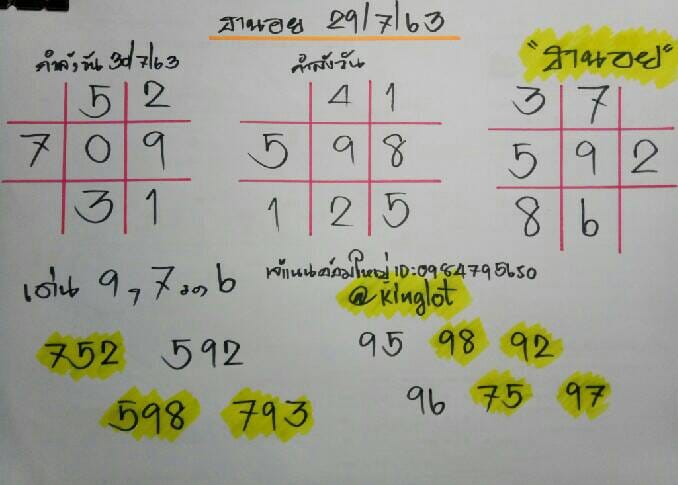 ฮานอย 29/7/63
กำลังวัน 30/7/63
กำลังวัน
"ฮานอย"
5 2
4 1
3 7
7 0 9
5 9 8
5 9 2
3 1
1 2 5
8 6
เด่น 9, 7 รอง 6
ID:0984795650
@kinglot
752 592
95 98 92
598 793
96 75 97